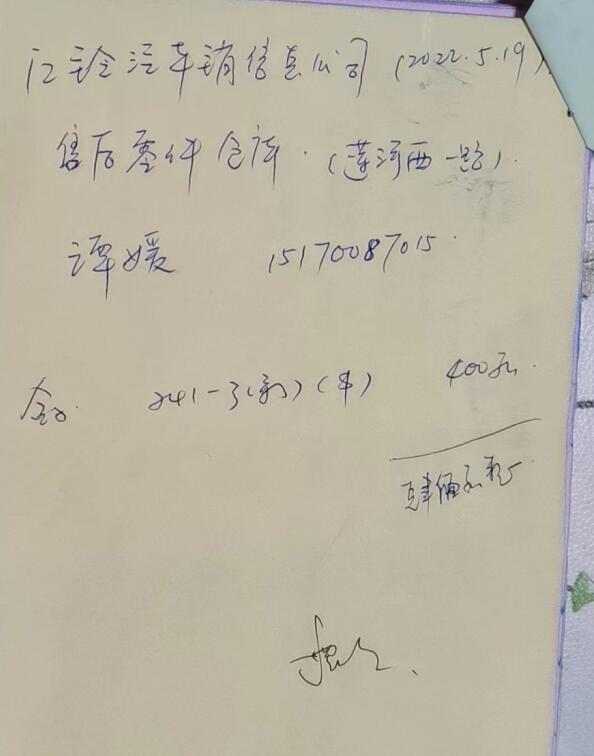 江铃汽车销售总公司 (2022.5.19)
售后零件仓库. (莲河西一路).
谭媛 15170087015.
241-3(新)(单) 400元.
肆佰元整